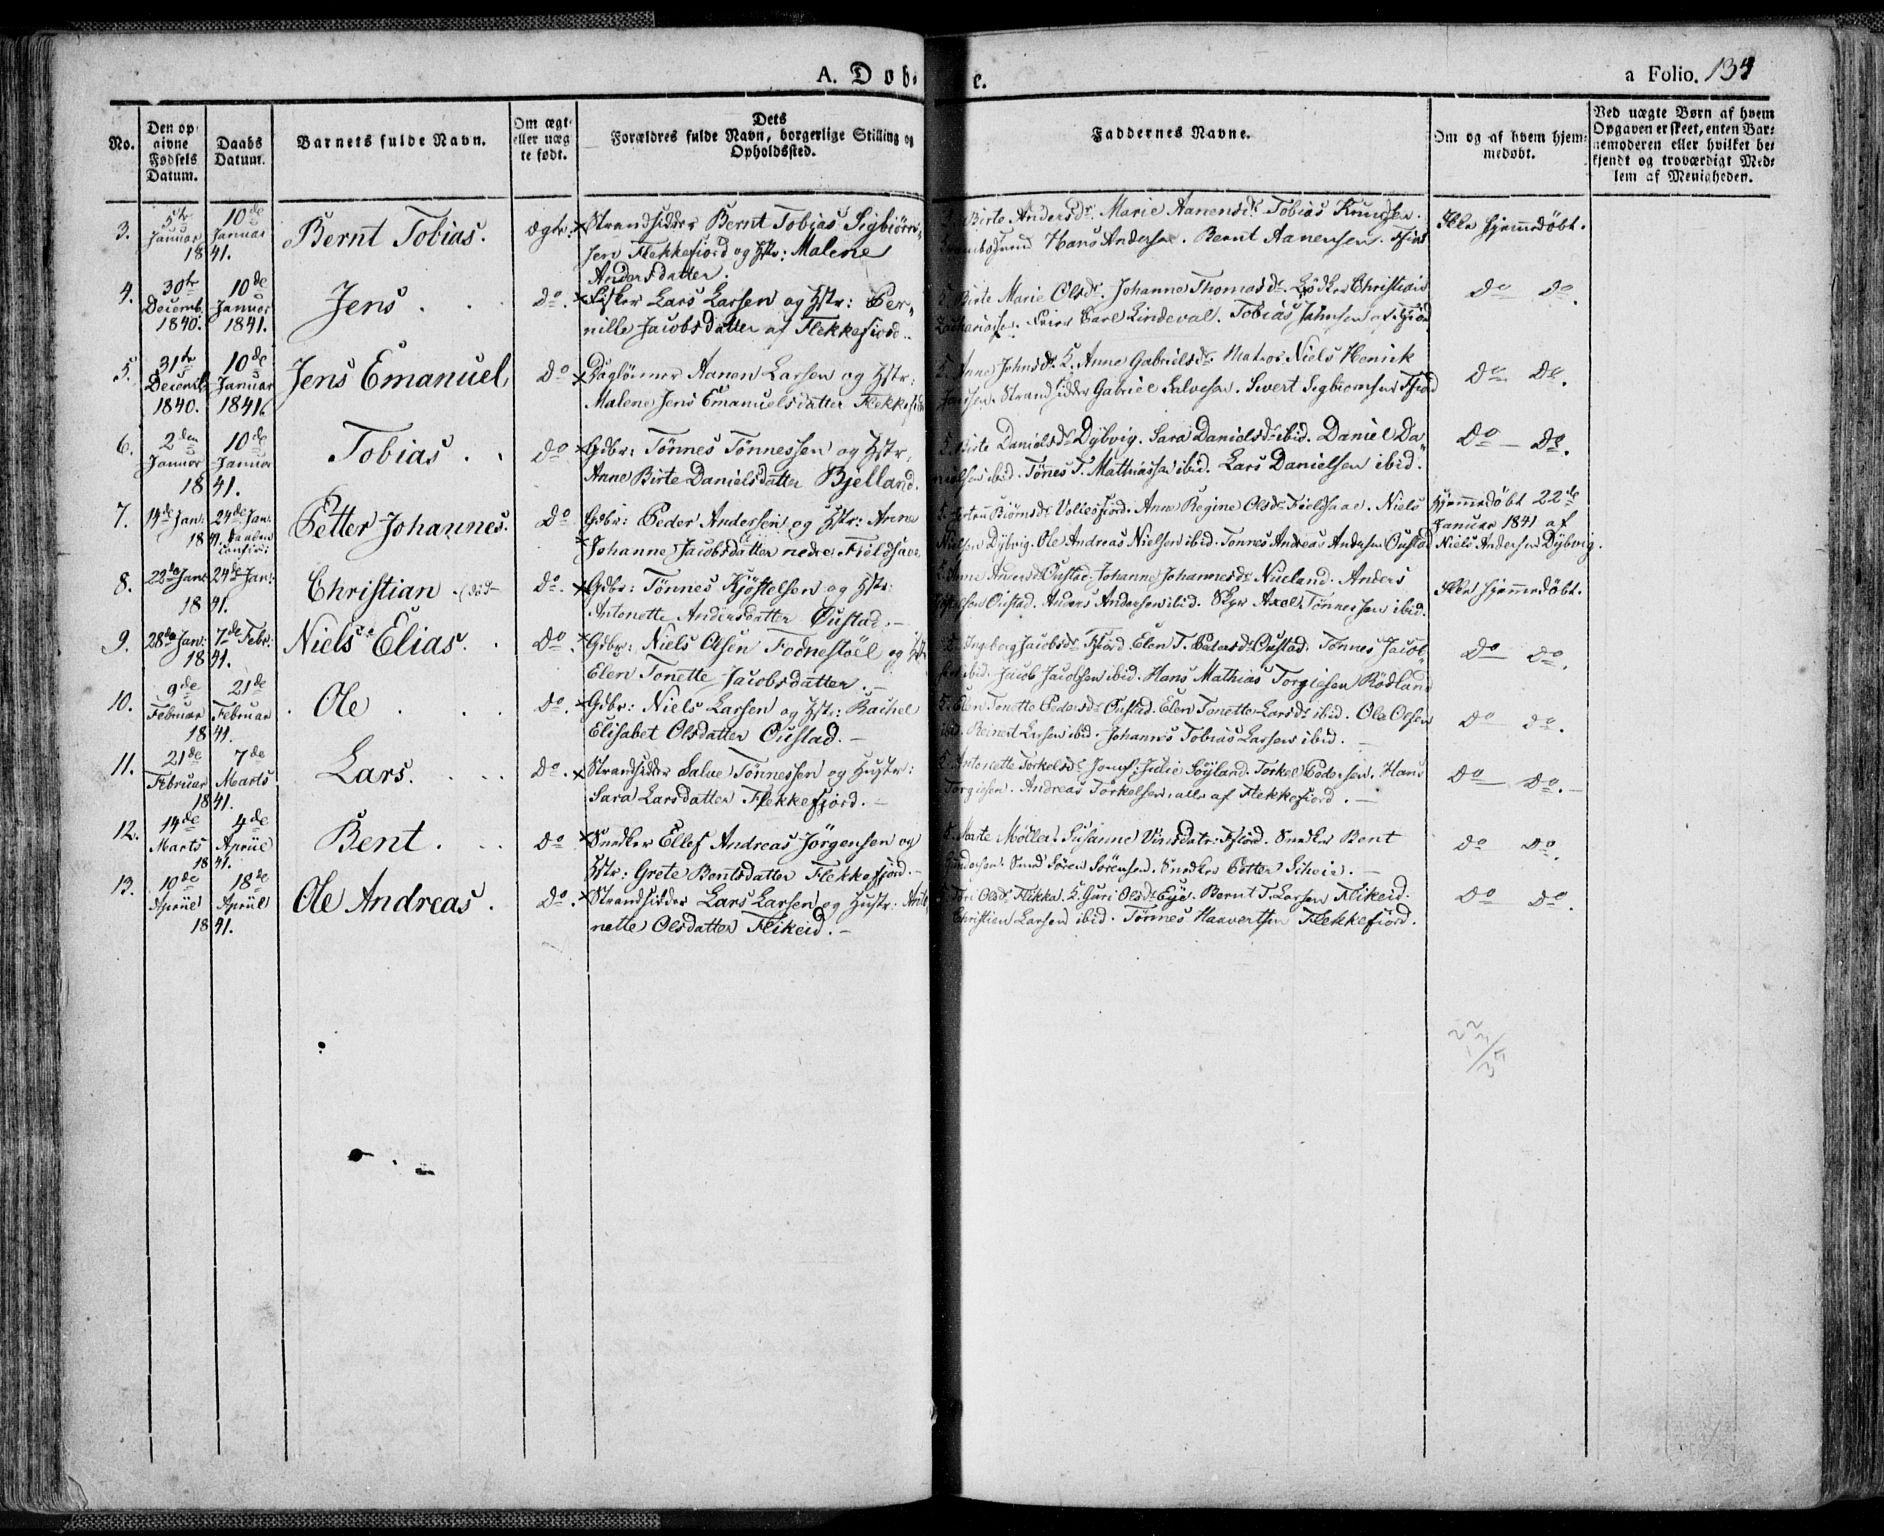 A. Døb-
e.
a Folio. 134
No.
Den opgivne Fødsels Datum.
Daabs Datum.
Barnets fulde Navn.
Om ægte eller uægte født.
Dets Forældres fulde Navn, borgerlige Stilling og Opholdssted.
Faddernes Navne.
Om og af hvem hjemmedøbt.
Ved uægte Børn af hvem Opgaven er skeet, enten Barnemoderen eller hvilket bekjendt og troværdigt Medlem af Menigheden.
3. 5te Januar 10de Januar 1841. Bernt Tobias. ægte. Strandsidder Bernt Tobias Sigbiørn-
sen Flekkefiord og Hstr: Malene
Andersdatter.
Birte Andersdr. Marie Aanensdr. Tobias Knudsen.
Hans Andersen. Bernt Aanensen.
Ikke hjemmedøbt.
4. 30te Decemb. 1840. 10de Januar 1841. Jens. Do. Fisker Lars Larsen og Hstr: Per-
nille Jacobsdatter af Flekkefiord.
Birte Marie Olsdr. Johanne Thomasdr. Christian
Zachariasen. Carl Lindeval. Tobias
Do Do.
5. 31te Decemb. 1840. 10de Januar 1841. Jens Emanuel, Do Daglönner Aanen Larsen og Hstr:
Malene Jens Emanuelsdatter
Anne Johnsdr. Anne Gabrielsdr. Matros Niels Henick
Strandsidder Gabriel Salvesen. Sivert Sigbiørnsen
Do Do.
6. 2den Januar 10de Januar 1841. Tobias. Do Gdbr: Tönnes Tönnessen og Hstr.
Anne Birte Danielsdatter Bjelland.
Birte Danielsdr Dybvig. Sara Danielsdr ibid. Daniel Da-
nielsen ibid. Tönes T. Mathiassen ibid. Lars Danielsen ibid.
Do Do.
7. 14de Jan: 24de Jan. 1841. Petter Johannes. Do Gdbr: Peder Andersen og Hstr: Anne
Johanne Jacobsdatter nedre Fieldsaae
Biörnsdr Voliesfiord. Anne Regine Olsdr Fieldsaae. Niels
Nielsen Dybvig. Ole Andreas Nielsen ibid. Tönnes Andreas Andersen Oustad
Hjemmedöbt 22de
Januar 1841 af
Niels Andersen Dybvig.
8. 22de Jan: 24de Jan: 1841. Christian Do. Gdbr: Tönnes Kjöstelsen og Hstr:
Antonette Andersdatter Oustad.
Anne Andersdr Oustad. Johanne Johannesdr Nueland. Anders
Oustad. Anders Andersen ibid. Axel Tönnessen ibid.
Ikke hjemmedöbt.
9. 28de Jan: 7de Febr: 1841. Niels Elias. Do. Gdbr: Niels Olsen Fodnestöel og
Elen Tonette Jacobsdatter.
Ingeborg Jacobsdr Elen T. Pedersdr Oustad. Tönnes Jacob-
sen ibid. Jacob Jacobsen ibid. Hans Mathias Torgiesen Rödland
Do Do.
10. 9de Februar 21de Februar 1841. Ole Do. Gdbr: Niels Larsen og Hstr: Rachel
Elisabet Olsdatter Oustad.
Elen Tonette Pedersdr Oustad. Elen Tonette Larsdr ibid. Ole Olsen
ibid. Reinert Larsen ibid. Johannes Tobias Larsen ibid.
Do Do.
11. 21de Februar 7de Marts 1841. Lars. Do. Strandsidder Salve Tönnessen og Hustr:
Sara Larsdatter Flekkefjord.
Antonette Torkelsdr Jomf: Julie Söyland. Torkel Pedersen. Hans
Torgiesen. Andreas Torkelsen. alle af Flekkefiord.
Do Do.
12. 14de Marts 4de Apriil 1841. Bent. Do Snedker Ellef Andreas Jörgensen og
Hstr: Grete Bentsdatter Flekkefjord.
Marte Møller. Susanne Snedker Bent
Gundersen. Sören Sörensen. Snedker Petter
Do Do.
13. 10de Apriil 18de Apriil 1841. Ole Andreas. Do. Strandsidder Lars Larsen og Hustr: Anto-
nette Olsdatter Flikeid.
Olsdr. Flikka. Guri Olsdr Eye. Bernt T. Larsen Flikeid.
Christien Larsen ibid. Tönnes Haavertsen Flekkefiord.
Do Do.